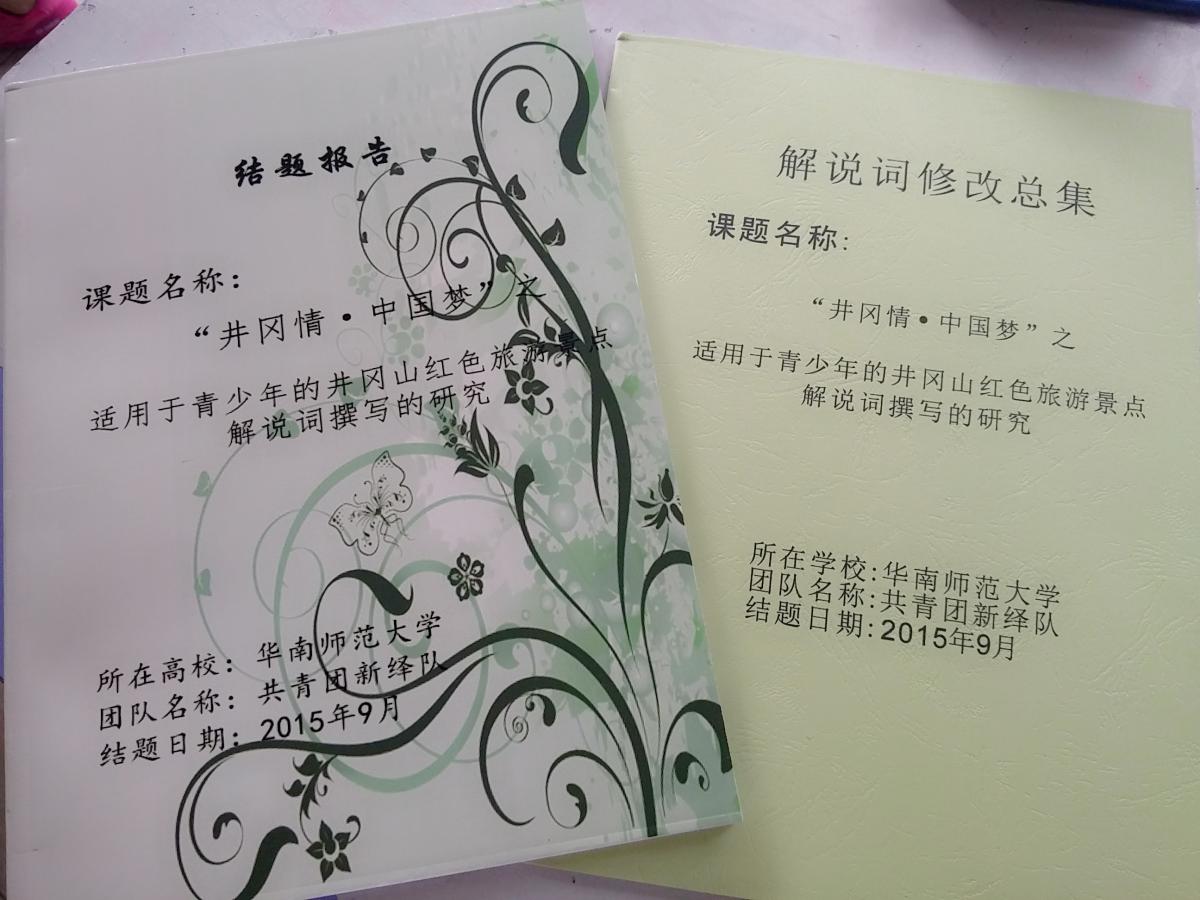 结题报告
课题名称：
“井冈情·中国梦”之
适用于青少年的井冈山红色旅游景点
解说词撰写的研究
所在高校：华南师范大学
团队名称：共青团新绎队
结题日期：2015年9月
解说词修改总集
课题名称:
“井冈情·中国梦”之
适用于青少年的井冈山红色旅游景点
解说词撰写的研究
所在学校:华南师范大学
团队名称:共青团新绎队
结题日期:2015年9月